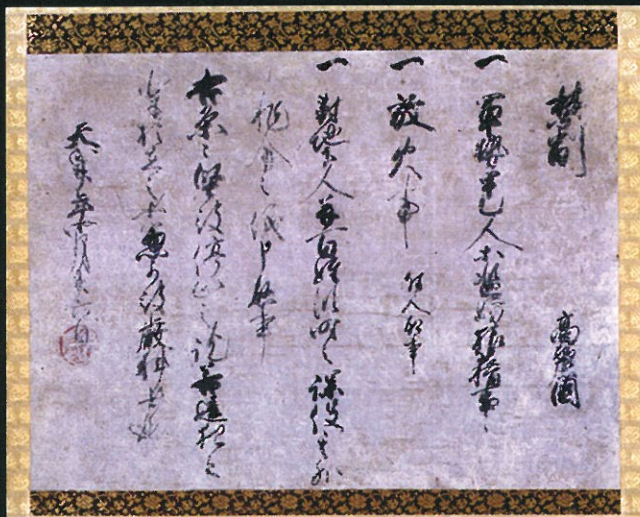 禁制　高麗国
一 軍勢甲乙人等濫妨狼藉事
一 放火事 付人取事
一 対地下人并百姓臨時之課役其外
之儀申懸事
右条々堅被停止之訖若違犯之
輩於在之者忽可被処厳科者也
天正廿年四月廿六日